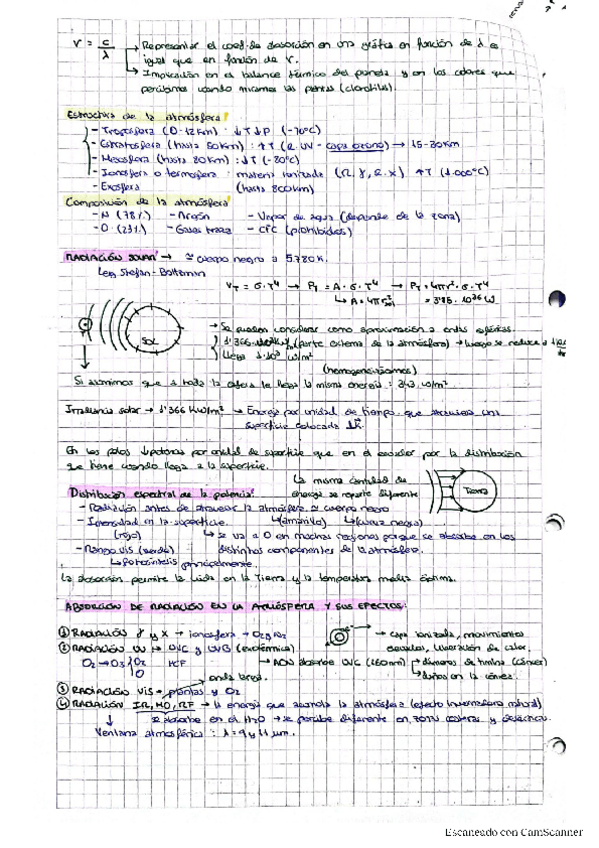 ν = c/λ → Representar el coef. de absorción en una gráfica en función de λ es
igual que en función de ν.
→ Implicación en el balance térmico del planeta y en los colores que
percibimos cuando miramos las plantas (clorofila).
Estructura de la atmósfera
- Troposfera (0-12 km) : ↓T ↓P (-70ºC)
- Estratosfera (hasta 50km) : ↑T (R.UV - capa ozono) → 15-30km
- Mesosfera (hasta 80km) : ↓T (-80ºC)
- Ionosfera o termosfera : materia ionizada (R. γ, R. X) ↑T (1.000ºC)
- Exosfera (hasta 800km)
Composición de la atmósfera
- N (78%) - Argón - Vapor de agua (depende de la zona)
- O (21%) - Gases traza - CFC (prohibidos)
RADIACIÓN SOLAR → ≃ cuerpo negro a 5780K.
Ley Stefan-Boltzman
= σ·T⁴ → P = A·σ·T⁴ → P = 4πr²·σ·T⁴
→ A = 4πr²
SOL
→ Se pueden considerar como aproximación a ondas esféricas.
(parte externa de la atmósfera) → luego se reduce a
llega 1·10³ W/m²
(homogeneizamos)
Si asumimos que a toda la esfera le llega la misma energía : 343 W/m²
Irradiancia solar → 1'366 kW/m² → Energía por unidad de tiempo que atraviesa una
superficie colocada
En los polos ↓potencia por unidad de superficie que en el ecuador por la distribución
que tiene cuando llega a la superficie.
La misma cantidad de
energía se reparte diferente
Tierra
Distribución espectral de la potencia
- Radiación antes de atravesar la atmósfera ≃ cuerpo negro
(amarillo) (curva negra)
- Intensidad en la superficie.
(rojo) → se va a 0 en muchas regiones porque se absorbe en los
distintos componentes de la atmósfera.
- Rango VIS (verde)
→ Fotosíntesis principalmente.
La absorción permite la vida en la Tierra y la temperatura media óptima.
ABSORCIÓN DE RADIACIÓN EN LA ATMÓSFERA Y SUS EFECTOS:
① RADIACIÓN γ y X → ionosfera → O₂ y N₂ → capa ionizada, movimientos
liberación de calor.
② RADIACIÓN UV → UVC y UVB (exotérmica)
O₂ → O₃ → ADN absorbe UVC (260nm) → dímeros de timina (cáncer)
→ daños en la córnea.
onda larga.
③ RADIACIÓN VIS → plantas y O₂
④ RADIACIÓN IR, MO, RF → la energía que abandona la atmósfera (efecto invernadero natural)
se absorbe en el H₂O → se percibe diferente en zonas costeras y desérticas.
Ventana atmosférica : λ = 9 y 11 μm.
Escaneado con CamScanner